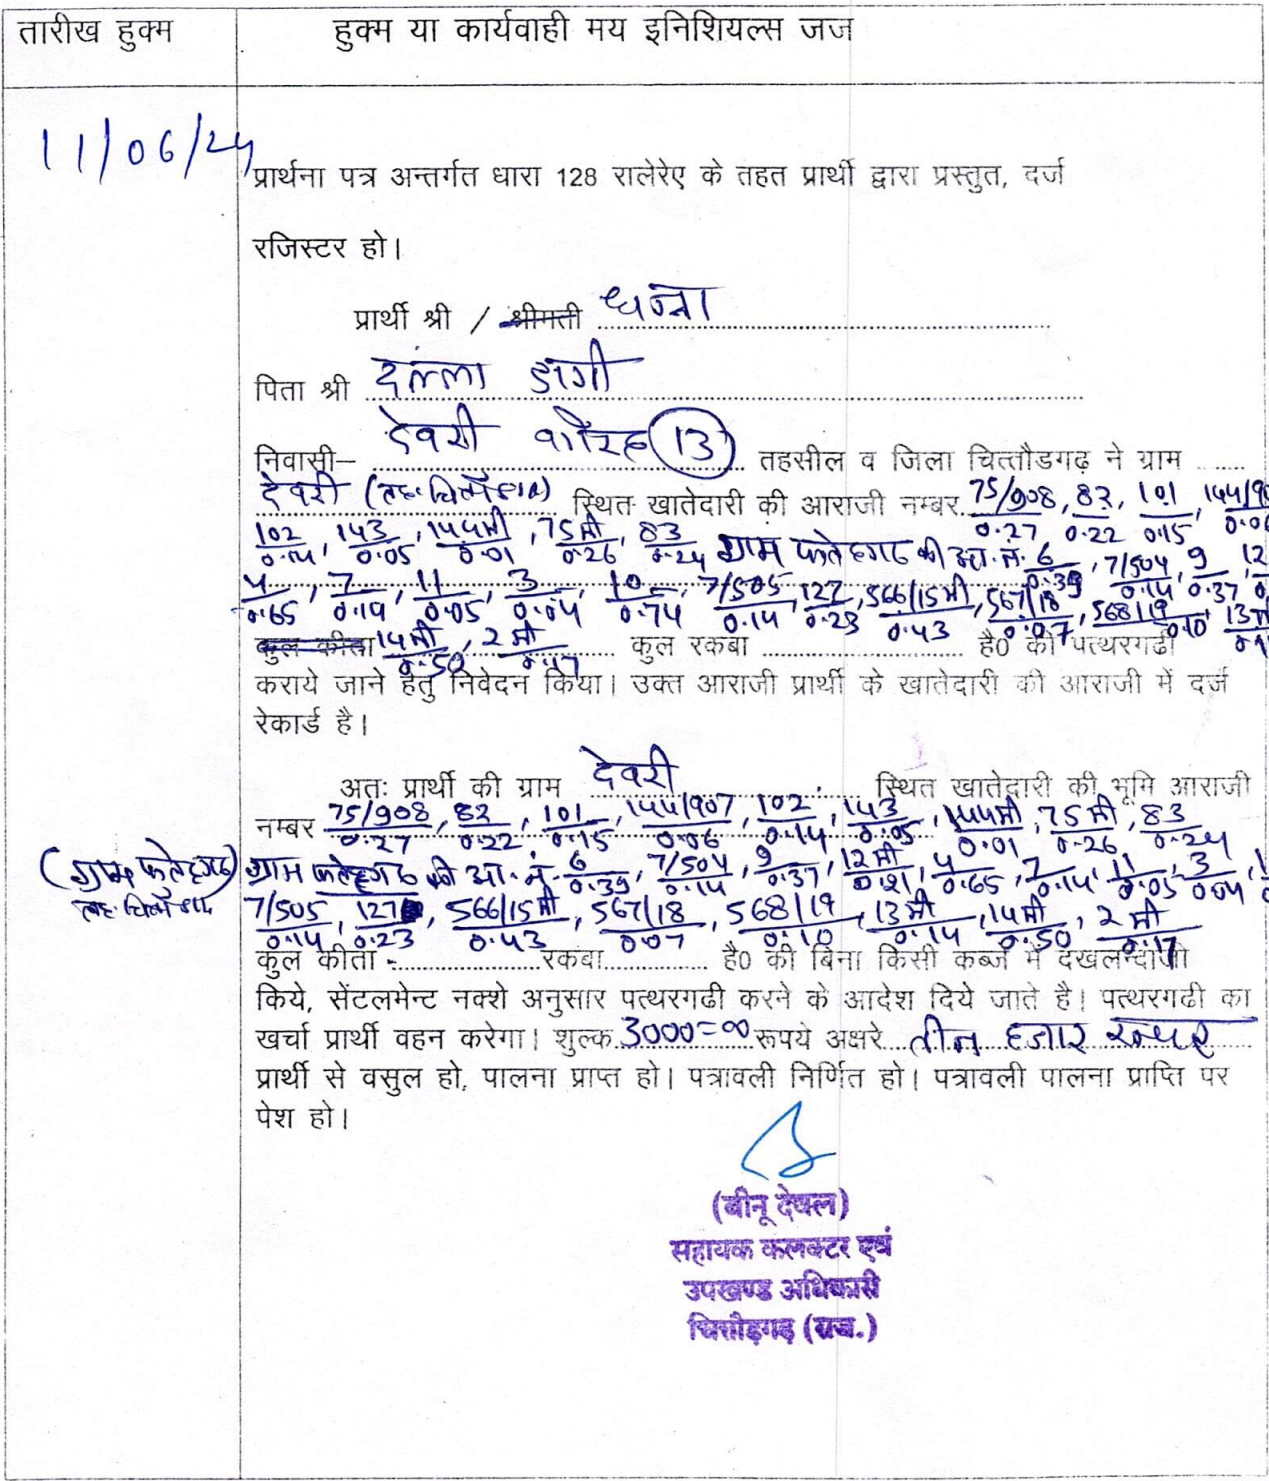 तारीख हुक्म
हुक्म या कार्यवाही मय इनिशियल्स जज
11/06/24
प्रार्थना पत्र अन्तर्गत धारा 128 रालेरेए के तहत प्रार्थी द्वारा प्रस्तुत, दर्ज
रजिस्टर हो।
प्रार्थी श्री / श्रीमती धन्ना
पिता श्री दल्ला डांगी
निवासी– देवरी वगैरह (13) तहसील व जिला चित्तौडगढ़ ने ग्राम
देवरी (तह. चित्तौड़गढ़) स्थित खातेदारी की आराजी नम्बर 75/908/0.27, 82/0.22, 101/0.15, 144/90
102/0.14, 143/0.05, 144मी/0.01, 75मी/0.26, 83/0.24 ग्राम फतेहगढ की आ. नं. 6/0.39, 7/504/0.14, 9/0.37, 12
4/0.65, 7/0.14, 11/0.05, 3/0.04, 10/0.74, 7/505/0.14, 127/0.23, 566/15मी/0.43, 567/18/0.07, 568/19/0.10, 13मी
कुल कीता 14मी/0.50, 2मी/0.17 कुल रकबा है0 की पत्थरगढी
कराये जाने हेतु निवेदन किया। उक्त आराजी प्रार्थी के खातेदारी की आराजी में दर्ज
रेकार्ड है।
अतः प्रार्थी की ग्राम देवरी स्थित खातेदारी की भूमि आराजी
नम्बर 75/908/0.27, 82/0.22, 101/0.15, 144/907/0.06, 102/0.14, 143/0.05, 144मी/0.01, 75मी/0.26, 83/0.24
(ग्राम फतेहगढ)
तह. चित्तौड़गढ़
ग्राम फतेहगढ की आ. नं. 6/0.39, 7/504/0.14, 9/0.37, 12मी/0.21, 4/0.65, 7/0.14, 11/0.05, 3/0.04,
7/505/0.14, 127/0.23, 566/15मी/0.43, 567/18/0.07, 568/19/0.10, 13मी/0.14, 14मी/0.50, 2मी/0.17
कुल कीता - रकबा है0 की बिना किसी कब्जे में दखलन्दाजी
किये, सेंटलमेन्ट नक्शे अनुसार पत्थरगढी करने के आदेश दिये जाते है। पत्थरगढी का
खर्चा प्रार्थी वहन करेगा। शुल्क 3000=00 रूपये अक्षरे तीन हजार रूपए
प्रार्थी से वसुल हो, पालना प्राप्त हो। पत्रावली निर्णित हो। पत्रावली पालना प्राप्ति पर
पेश हो।
(बीनू देवल)
सहायक कलक्टर एवं
उपखण्ड अधिकारी
चित्तौड़गढ़ (राज.)